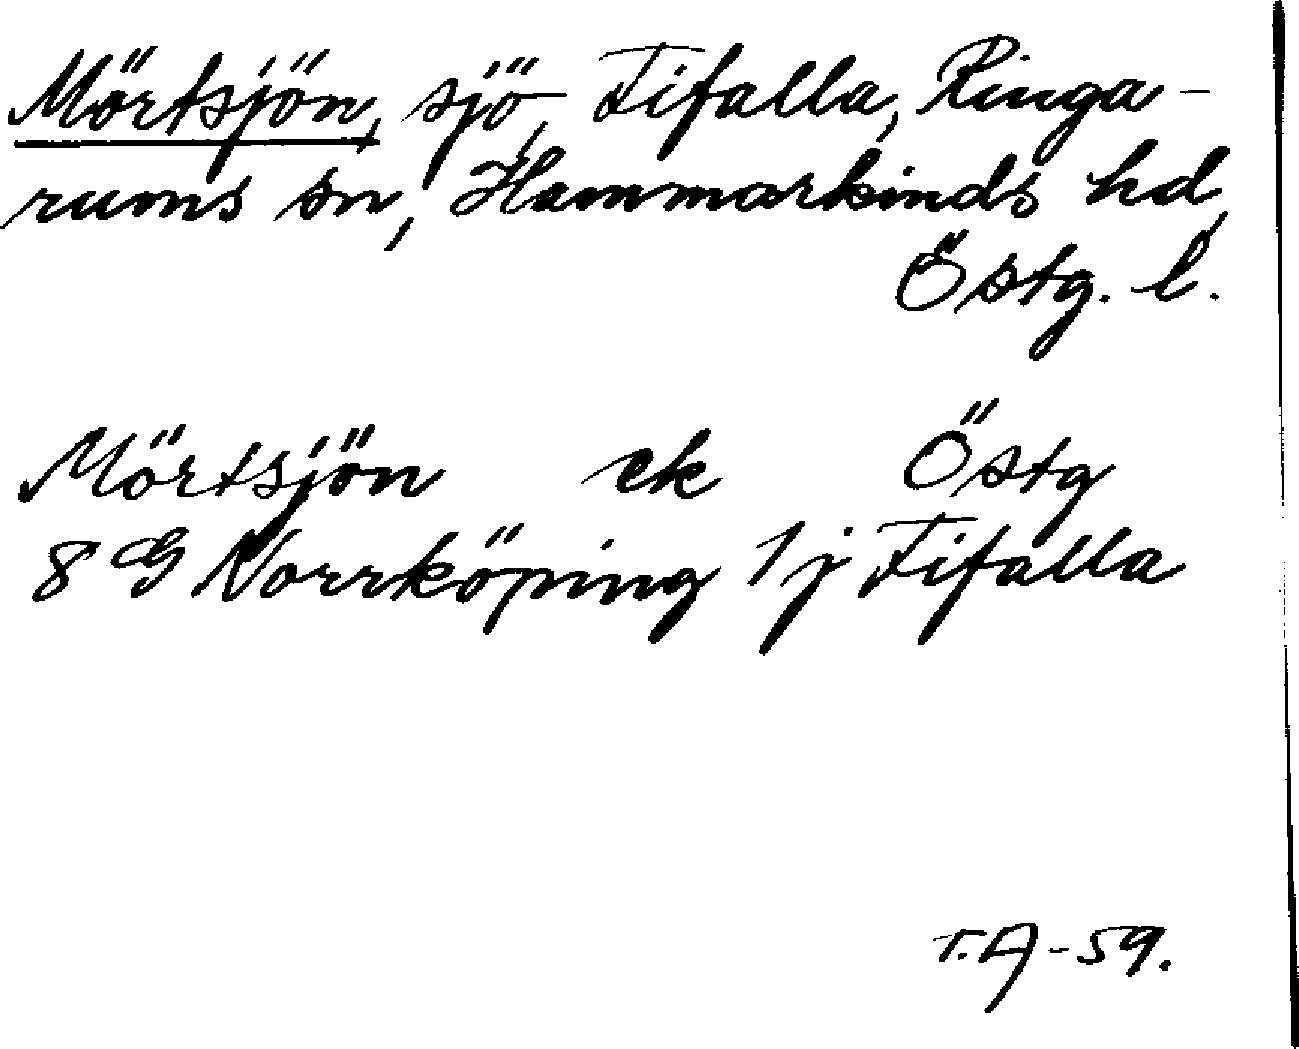 Mörtsjön, sjö, Fifalla, Ringa-
rums sn, Hammarkinds hd,
Östg. l.
Mörtsjön ek Östg
8 G Norrköping 1j Fifalla
T.A-59.